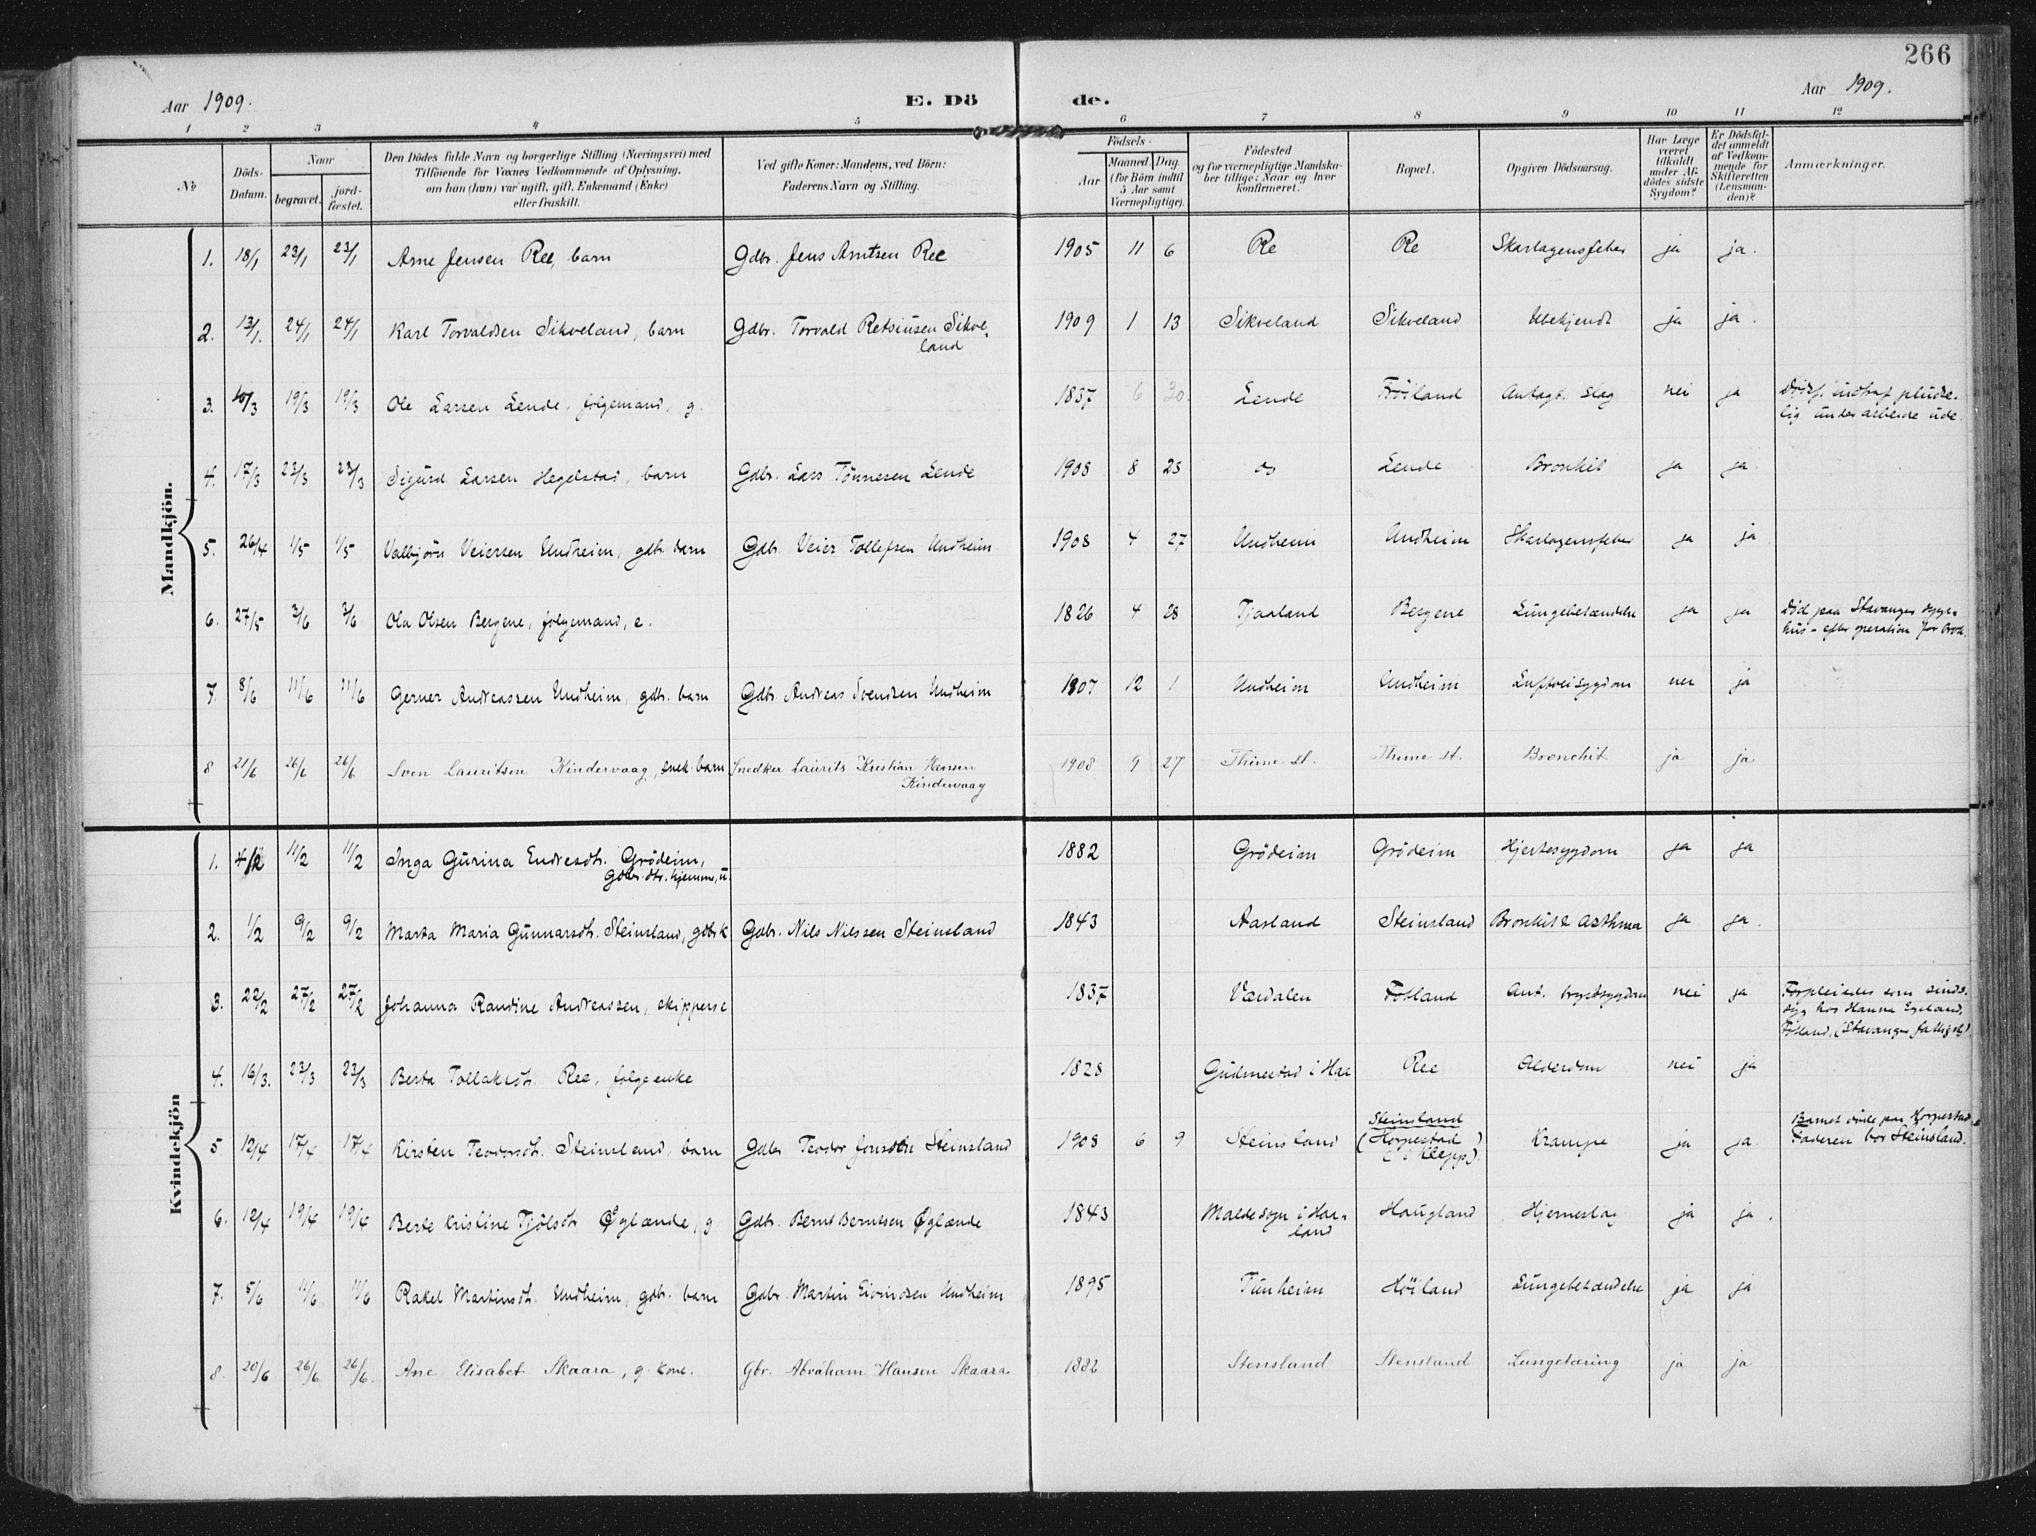 266
Aar 1909.
E. Dö de.
Aar 1909.
1 2 3 4 5 6 7 8 9 10 11 12
No
Döds-Datum.
Naar
begravet.
jord-fæstet.
Den Dödes fulde Navn og borgerlige Stilling (Næringsvei) med
Tilföiende for Voxnes Vedkommende af Oplysning,
om han (hun) var ugift, gift, Enkemand (Enke)
eller fraskilt.
Ved gifte Koner: Mandens, ved Börn:
Faderens Navn og Stilling.
Födsels-
Aar
Maaned. Dag.
(for Börn indtil
5 Aar samt
Værnepligtige).
Födested
og for værnepligtige Mandska-
ber tillige: Naar og hvor
konfirmeret.
Bopæl.
Opgiven Dödsaarsag.
Har Læge
været
tilkaldt
under Af-
dödes sidste
Sygdom?
Er Dödsfal-
det anmeldt
af Vedkom-
mende for
Skifteretten
(Lensman-
den)?
Anmærkninger.
Mandkjön.
1. 18/1 23/1 23/1 Arne Jensen Ree, barn Gdbr. Jens Arntsen Ree 1905 11 6 Re Re Skarlagensfeber ja ja.
2. 13/1. 24/1 24/1 Karl Torvaldsen Sikveland, barn Gdbr. Torvald Retsiusen Sikve-
land 1909 1 13 Sikveland Sikveland Ubekjendt ja ja.
3. 10/3 19/3 19/3 Ole Larsen Lende, følgemand, g. 1837 6 30. Lende Fröiland Antagt. slag nei ja Dödsf. indtraf pludse-
lig under arbeide ude.
4. 17/3 23/3 23/3 Sigurd Larsen Hegelstad, barn Gdbr. Lars Tönnesen Lende 1908 8 23 Lende Bronkit ja ja.
5. 26/4 1/5 1/5 Valbjörn Veiersen Undheim, gdb. barn Gdb. Veier Tollefsen Undheim 1908 4 27 Undheim Undheim Skarlagensfeber ja ja
6. 27/5 3/6 3/6 Ola Olsen Bergene, følgemand, e. 1826 4 28 Tjaaland Bergene Lungebetændelse ja ja Död paa Stavanger syge-
hus - efter operation for brok.
7. 8/6 11/6 11/6 Gerner Andreassen Undheim, gdb. barn Gdb. Andreas Svendsen Undheim 1907 12 1 Undheim Undheim Luftveisygdom nei ja
8 21/6 26/6 26/6 Sven Lauritsen Kindervaag, snek. barn Snedker Laurits Kristian Hansen
Kindervaag 1908 9 27 Thime st. Thime st. Bronchit ja ja
Kvindekjön
1. 4/2 11/2 11/2 Inga Gurina Endresdt. Grödeim,
gdbr. dtr. hjemme, u. 1882 Grödeim Grödeim Hjertesygdom ja ja
2. 1/2 9/2 9/2 Marta Maria Gunnarsdt. Steinsland, gdbrk Gdbr. Nils Nilssen Steinsland 1843 Aarland Steinsland Bronkit & asthma ja ja.
3. 22/2 27/2 27/2 Johanna Randine Andreassen, skippers e 1837 Værdalen Fotland Ant. brystsygdom nei ja Forpleiedes som sinds-
syg hos Hanna Egeland,
Fotland, (Stavanger fattigv.)
4. 16/3. 23/3 23/3 Berta Tollaksdt. Ree, følgeenke 1828 Gudmestad i Haa Ree Alderdom nei ja
5 12/4 17/4 17/4 Kirsten Teodorsdt. Steinsland, barn Gdbr Teodor Jonssen Steinsland 1908 6 9 Steinsland Steinsland
(Horpestad
i Klepp). Krampe ja ja. Barnet döde paa Horpestad
Faderen bor Steinsland.
6. 12/4 19/4 19/4 Berte Kristine Tjölsdt Øglænde, g Gdbr. Bernt Berntsen Øglænde 1843 Malde sogn i Haa-
land Haugland Hjerneslag ja ja.
7. 5/6 11/6 11/6 Rakel Martinsdt. Undheim, gdb. barn Gdbr. Martin Eivindsen Undheim 1895 Tunheim Höiland Lungebetændelse ja ja
8. 20/6 26/6 26/6. Ane Elisabet Skaara, g. kone. Gbr. Abraham Hansen Skaara 1882 Stensland Stensland Lungetæring ja ja